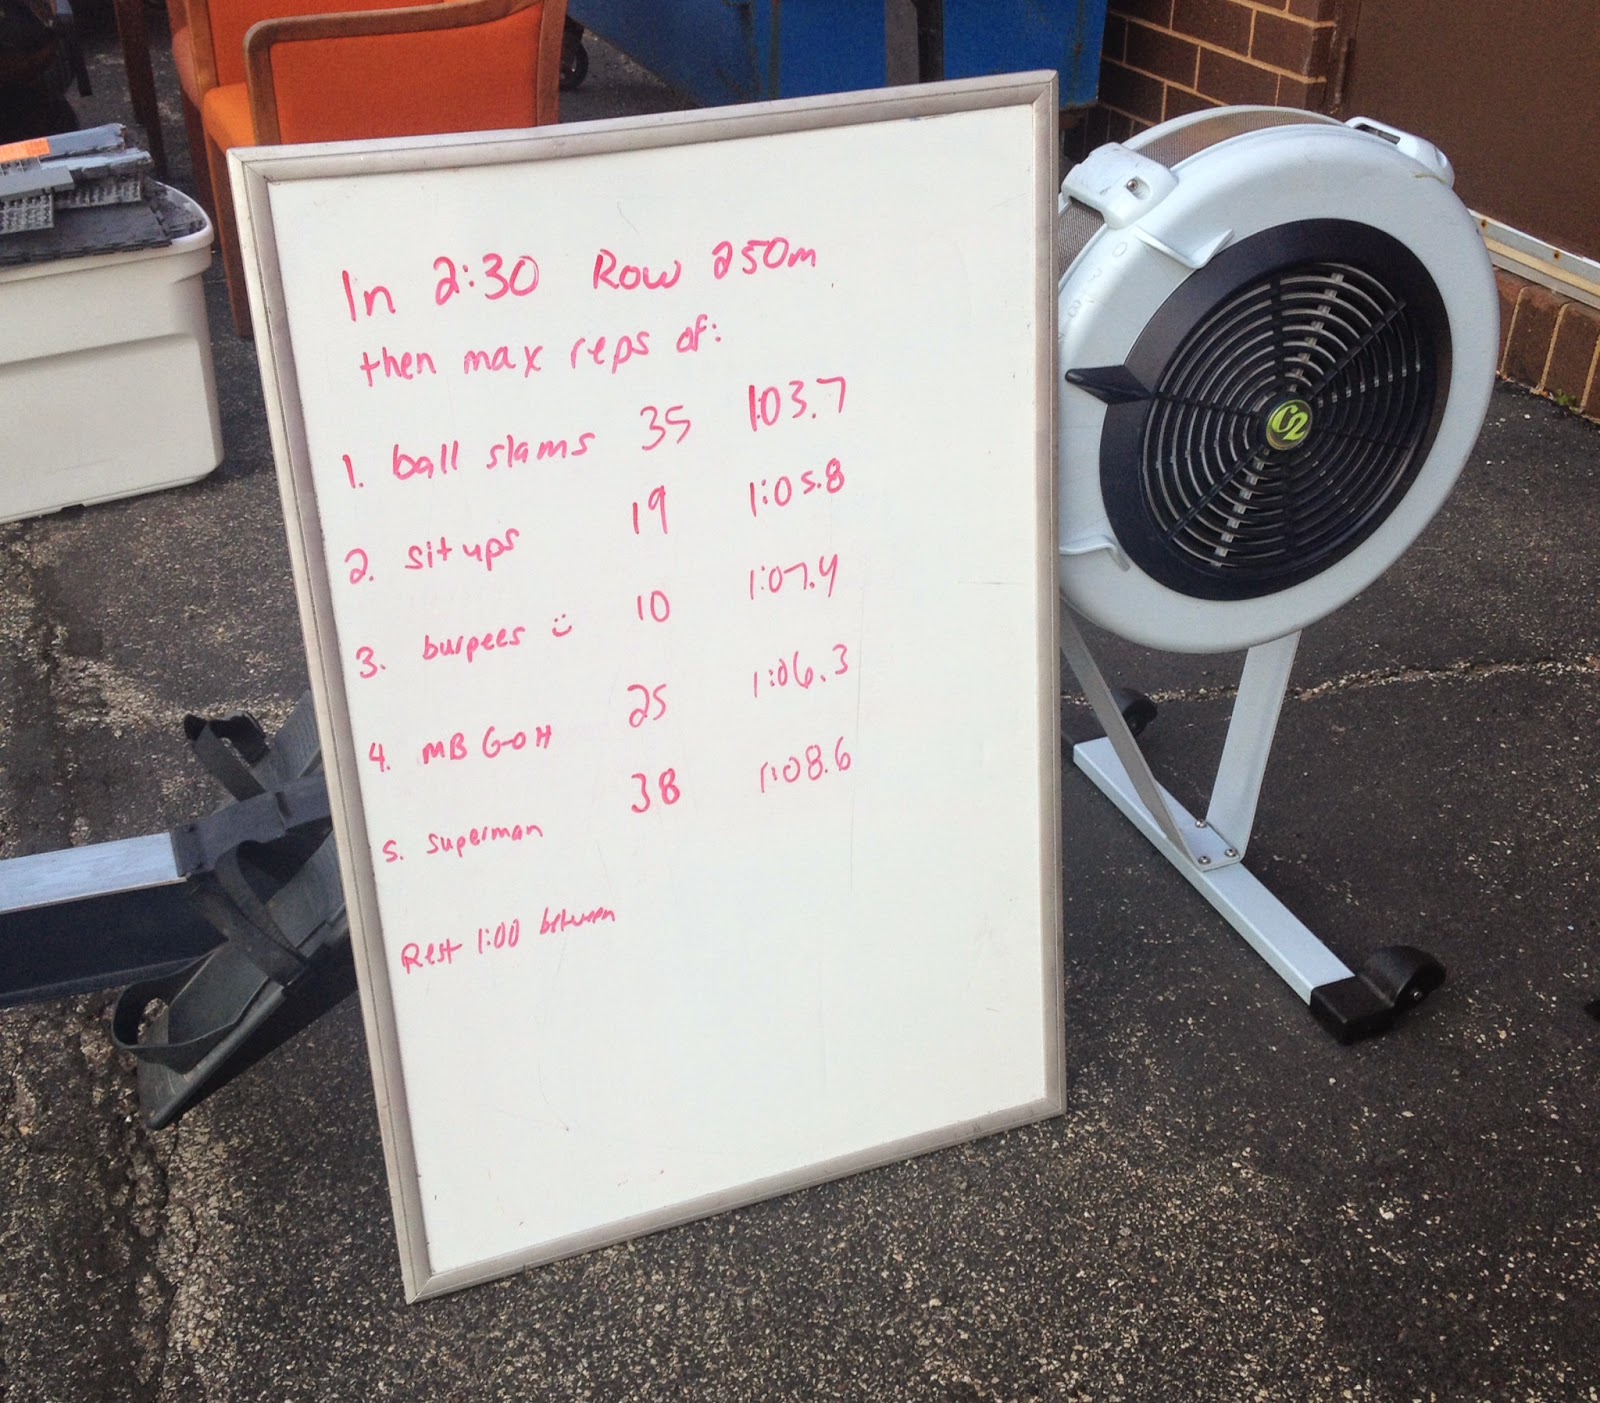 In 2:30 Row 250m
then max reps of:
1. ball slams 35 1:03.7
2. sit ups 19 1:05.8
3. burpees 10 1:07.4
4. MB G-OH 25 1:06.3
5. superman 38 1:08.6
Rest 1:00 between
C2